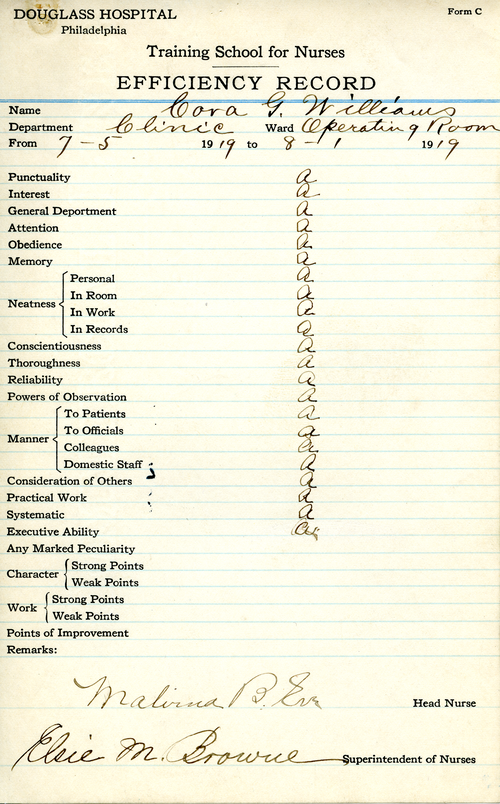 DOUGLASS HOSPITAL
Form C
Philadelphia
Training School for Nurses
EFFICIENCY RECORD
Name Cora G. Williams
Department Clinic Ward Operating Room
From 7-5 1919 to 8-1 1919
Punctuality a
Interest a
General Department a
Attention a
Obedience a
Memory a
Neatness
Personal a
In Room a
In Work a
In Records a
Conscientiousness a
Thoroughness a
Reliability a
Powers of Observation a
Manner
To Patients a
To Officials a
Colleagues a
Domestic Staff a
Consideration of Others a
Practical Work a
Systematic a
Executive Ability a
Any Marked Peculiarity
Character
Strong Points
Weak Points
Work
Strong Points
Weak Points
Points of Improvement
Remarks:
B. Head Nurse
Elsie M. Browne Superintendent of Nurses